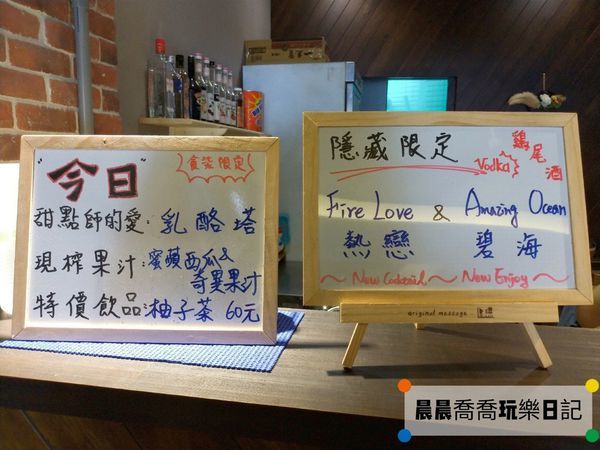 "今日"
貪婪限定
甜點師的愛：乳酪塔
現榨果汁：蜜蘋西瓜&
奇異果汁
特價飲品：柚子茶 60元
隱藏限定
Vodka
雞尾酒
Fire Love & Amazing Ocean
熱戀 碧海
~ New Cocktail ~ New Enjoy ~
original message
晨晨喬喬玩樂日記